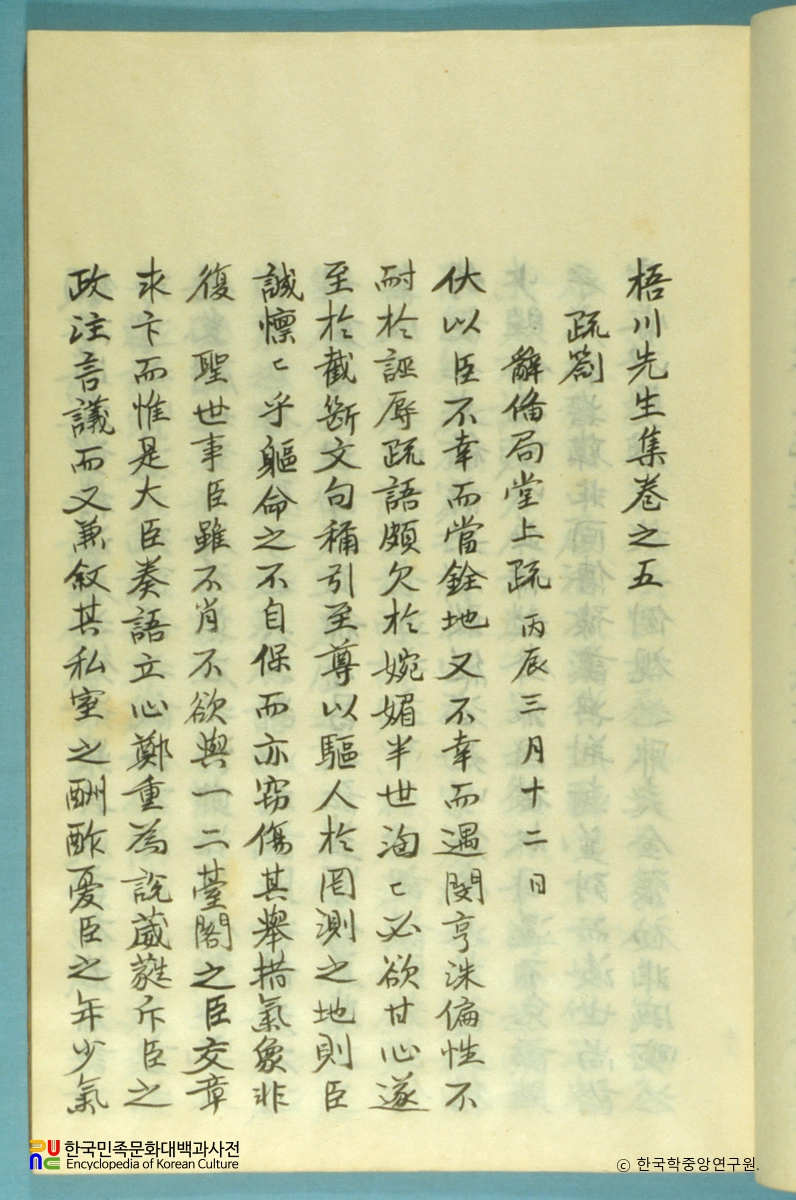 梧川先生集卷之五
疏劄
辭備局堂上疏 丙辰三月十二日
伏以臣不幸而當銓地又不幸而遇閔亨洙偏性不
耐於誣辱疏語頗欠於婉媚半世洶〻必欲甘心遂
至於截斷文句稱引至尊以驅人於罔測之地則臣
誠懍〻乎軀命之不自保而亦窃傷其擧措氣象非
復 聖世事臣雖不肖不欲與一二臺閣之臣交章
求卞而惟是大臣奏語立心鄭重為說葳蕤斥臣之
政注言議而又兼敘其私室之酬酢憂臣之年少氣
한국민족문화대백과사전
Encyclopedia of Korean Culture
© 한국학중앙연구원.